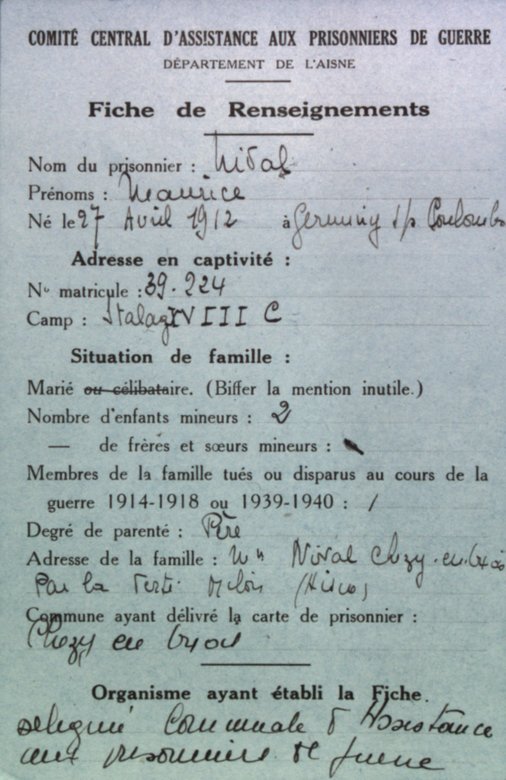 COMITÉ CENTRAL D'ASSISTANCE AUX PRISONNIERS DE GUERRE
DÉPARTEMENT DE L'AISNE
Fiche de Renseignements
Nom du prisonnier : Nival
Prénoms : Maurice
Né le 27 Avril 1912 à Germiny s/s Coulombs
Adresse en captivité :
No matricule : 39.224
Camp : Stalag XVIII C
Situation de famille :
Marié ou célibataire. (Biffer la mention inutile.)
Nombre d'enfants mineurs : 2
— de frères et sœurs mineurs :
Membres de la famille tués ou disparus au cours de la
guerre 1914-1918 ou 1939-1940 : 1
Degré de parenté : Père
Adresse de la famille : Nival Chezy-en-Orxois
Par la Ferté Milon (Aisne)
Commune ayant délivré la carte de prisonnier :
Chezy en Orxois
Organisme ayant établi la Fiche.
délégué Communale d'Assistance
aux prisonniers de guerre